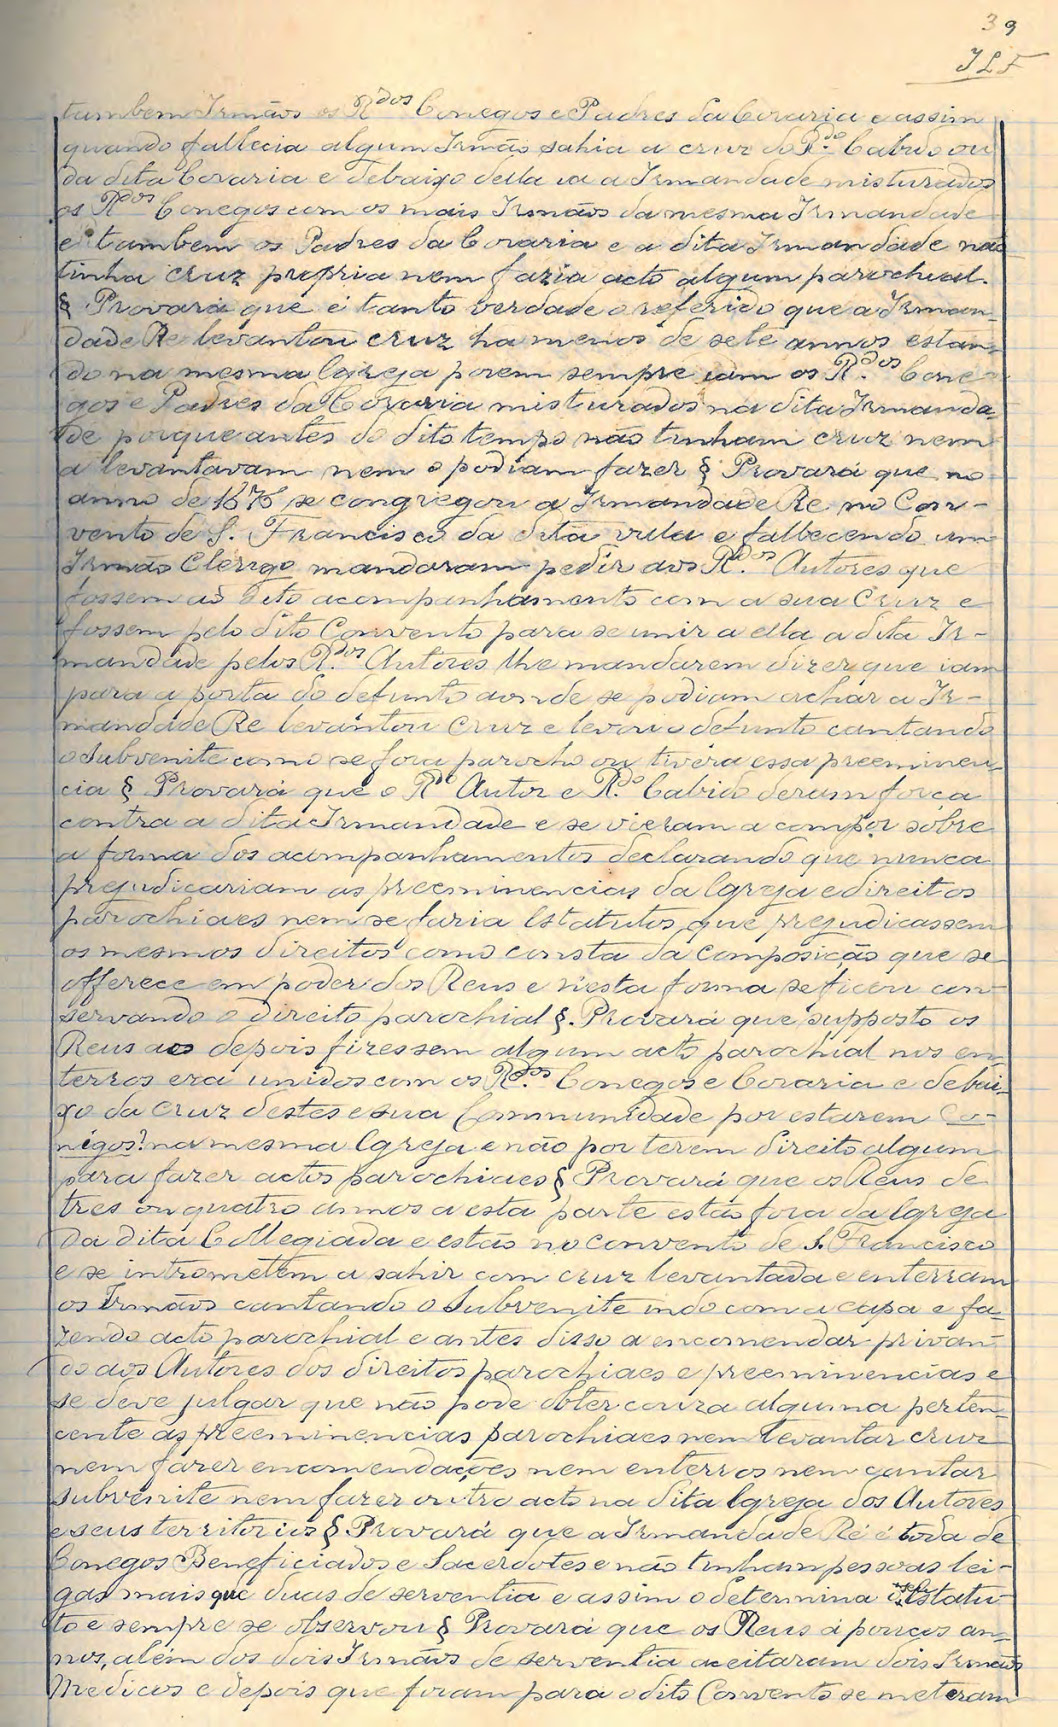 39
JLF
tambem Irmãos os R.dos Conegos e Padres da Coraria e assim
quando fallecia algum Irmão sahia a cruz do R.do Cabido ou
da dita Coraria e debaixo della ia a Irmandade misturados
os R.dos Conegos com os mais Irmãos da mesma Irmandade
e tambem os Padres da Coraria e a dita Irmandade não
tinha cruz propria nem fazia acto algum parochial.
§ Provará que é tanto verdade o referido que a Irman-
dade Re levantou cruz ha menos de sete annos estan-
do na mesma Igreja porem sempre iam os R.dos Cone-
gos e Padres da Coraria misturados na dita Irmanda-
de porque antes do dito tempo não tinham cruz nem
a levantavam nem o podiam fazer § Provará que no
anno de 1676 se congregou a Irmandade Re no Con-
vento de S. Francisco da dita villa e fallecendo um
Irmão Clerigo mandaram pedir aos R.dos Autores que
fossem ao dito acompanhamento com a sua Cruz e
fossem pelo dito Convento para se unir a ella a dita Ir-
mandade pelos R.dos Autores lhe mandarem dizer que iam
para a porta do defunto aonde se podiam achar a Ir-
mandade Re levantou Cruz e levou o defunto cantando
o Subvenite como se fora parocho ou tivera essa preeminen-
cia § Provará que o R.do Autor e R.do Cabido deram força
contra a dita Irmandade e se vieram a compor sobre
a forma dos acompanhamentos declarando que nunca
prejudicariam as preeminencias da Igreja e direitos
parochiaes nem se faria Estatutos que prejudicassem
os mesmos direitos como consta da Composição que se
offerece em poder dos Reus e n'esta forma se ficou con-
servando o direito parochial §. Provará que supposto os
Reus aos depois fizessem algum acto parochial nos en-
terros era unidos com os R.dos Conegos e Coraria e debai-
xo da Cruz destes e sua Communidade por estarem Co-
nigos? na mesma Igreja e não por terem direito algum
para fazer actos parochiaes § Provará que os Reus de
tres ou quatro annos a esta parte estão fora da Igreja
da dita Collegiada e estão no convento de S. Francisco
e se intrometem a sahir com cruz levantada e enterram
os Irmãos cantando o Subvenite indo com a capa e fa-
zendo acto parochial e antes disso a encomendar privan-
do aos Autores dos direitos parochiaes e preeminencias e
se deve julgar que não pode obter couza alguma perten-
cente ás preeminencias parochiaes nem levantar cruz
nem fazer encomendações nem enterros nem cantar
subvenite nem fazer outro acto na dita Igreja dos Autores
e seus territorios § Provará que a Irmandade Ré é toda de
Conegos Beneficiados e Sacerdotes e não tinham pessoas lei-
gas mais que duas de serventia e assim o determina o seu Estatu-
to e sempre se observou § Provará que os Reus á poucos an-
nos, além dos dois Irmãos de serventia aceitaram dois Irmãos
Medicos e depois que foram para o dito Convento se meteram